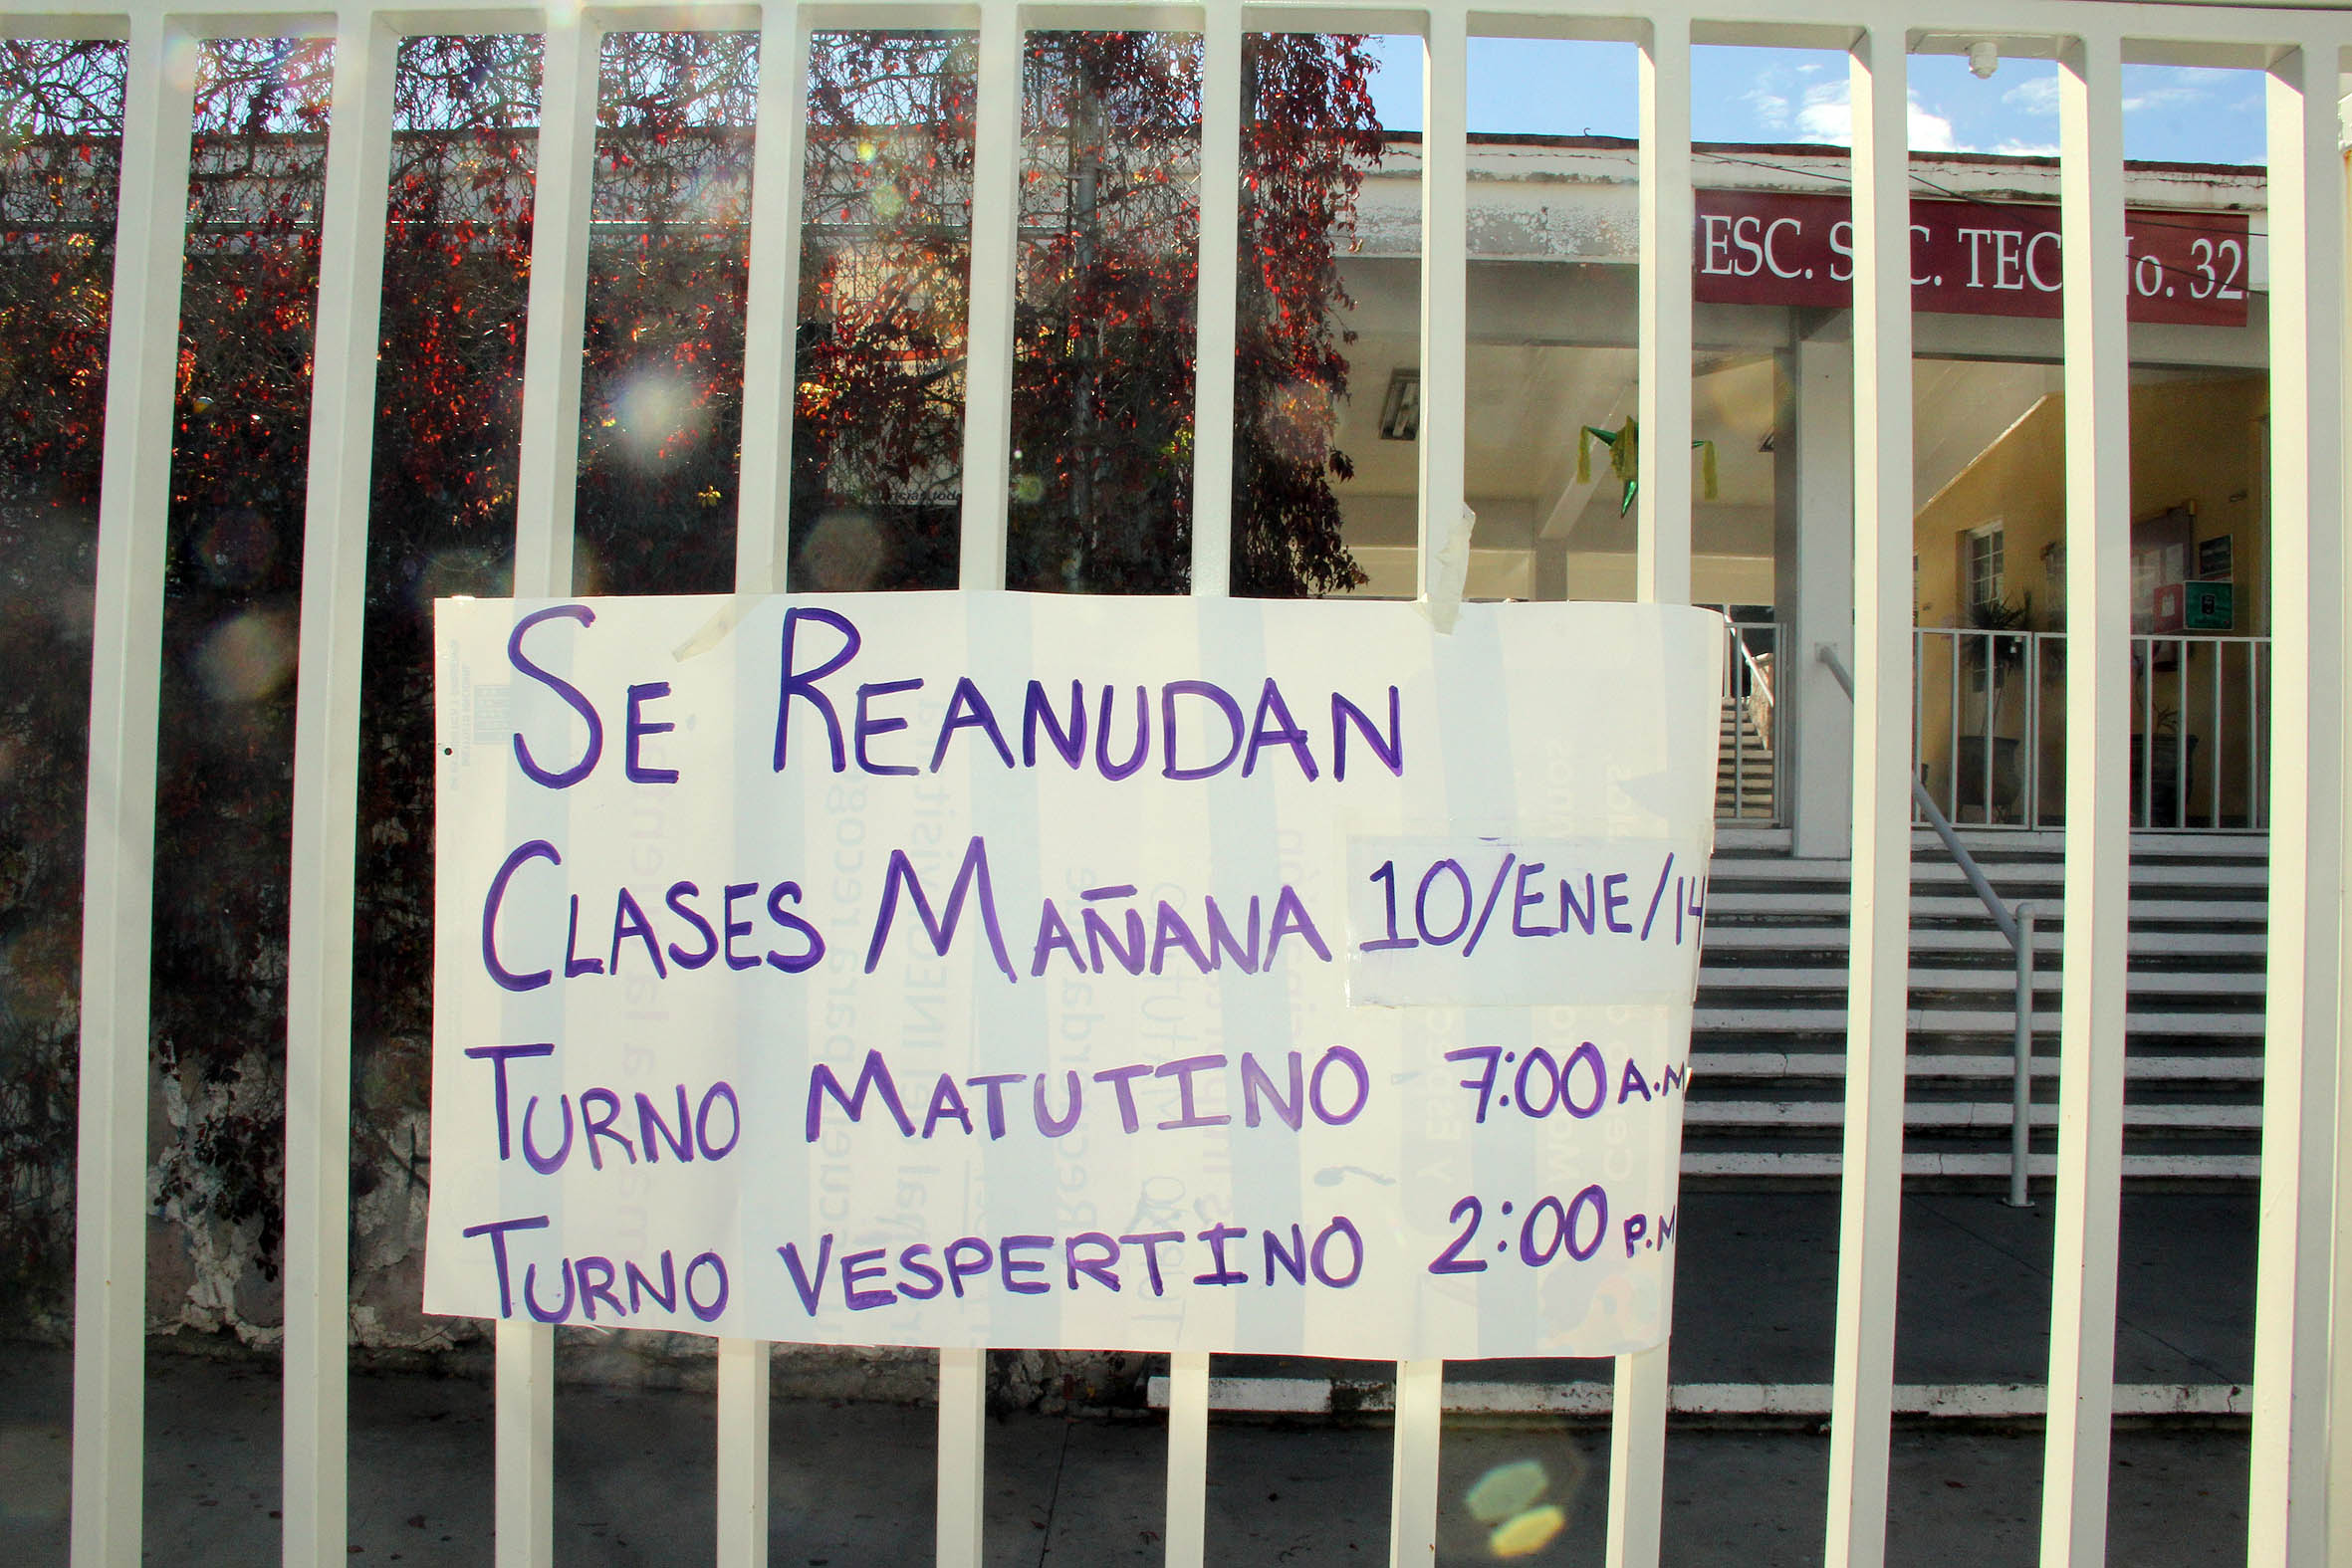 ESC. SEC. TEC. No. 32
SE REANUDAN
CLASES MAÑANA 10/ENE/14
TURNO MATUTINO 7:00 A.M
TURNO VESPERTINO 2:00 P.M